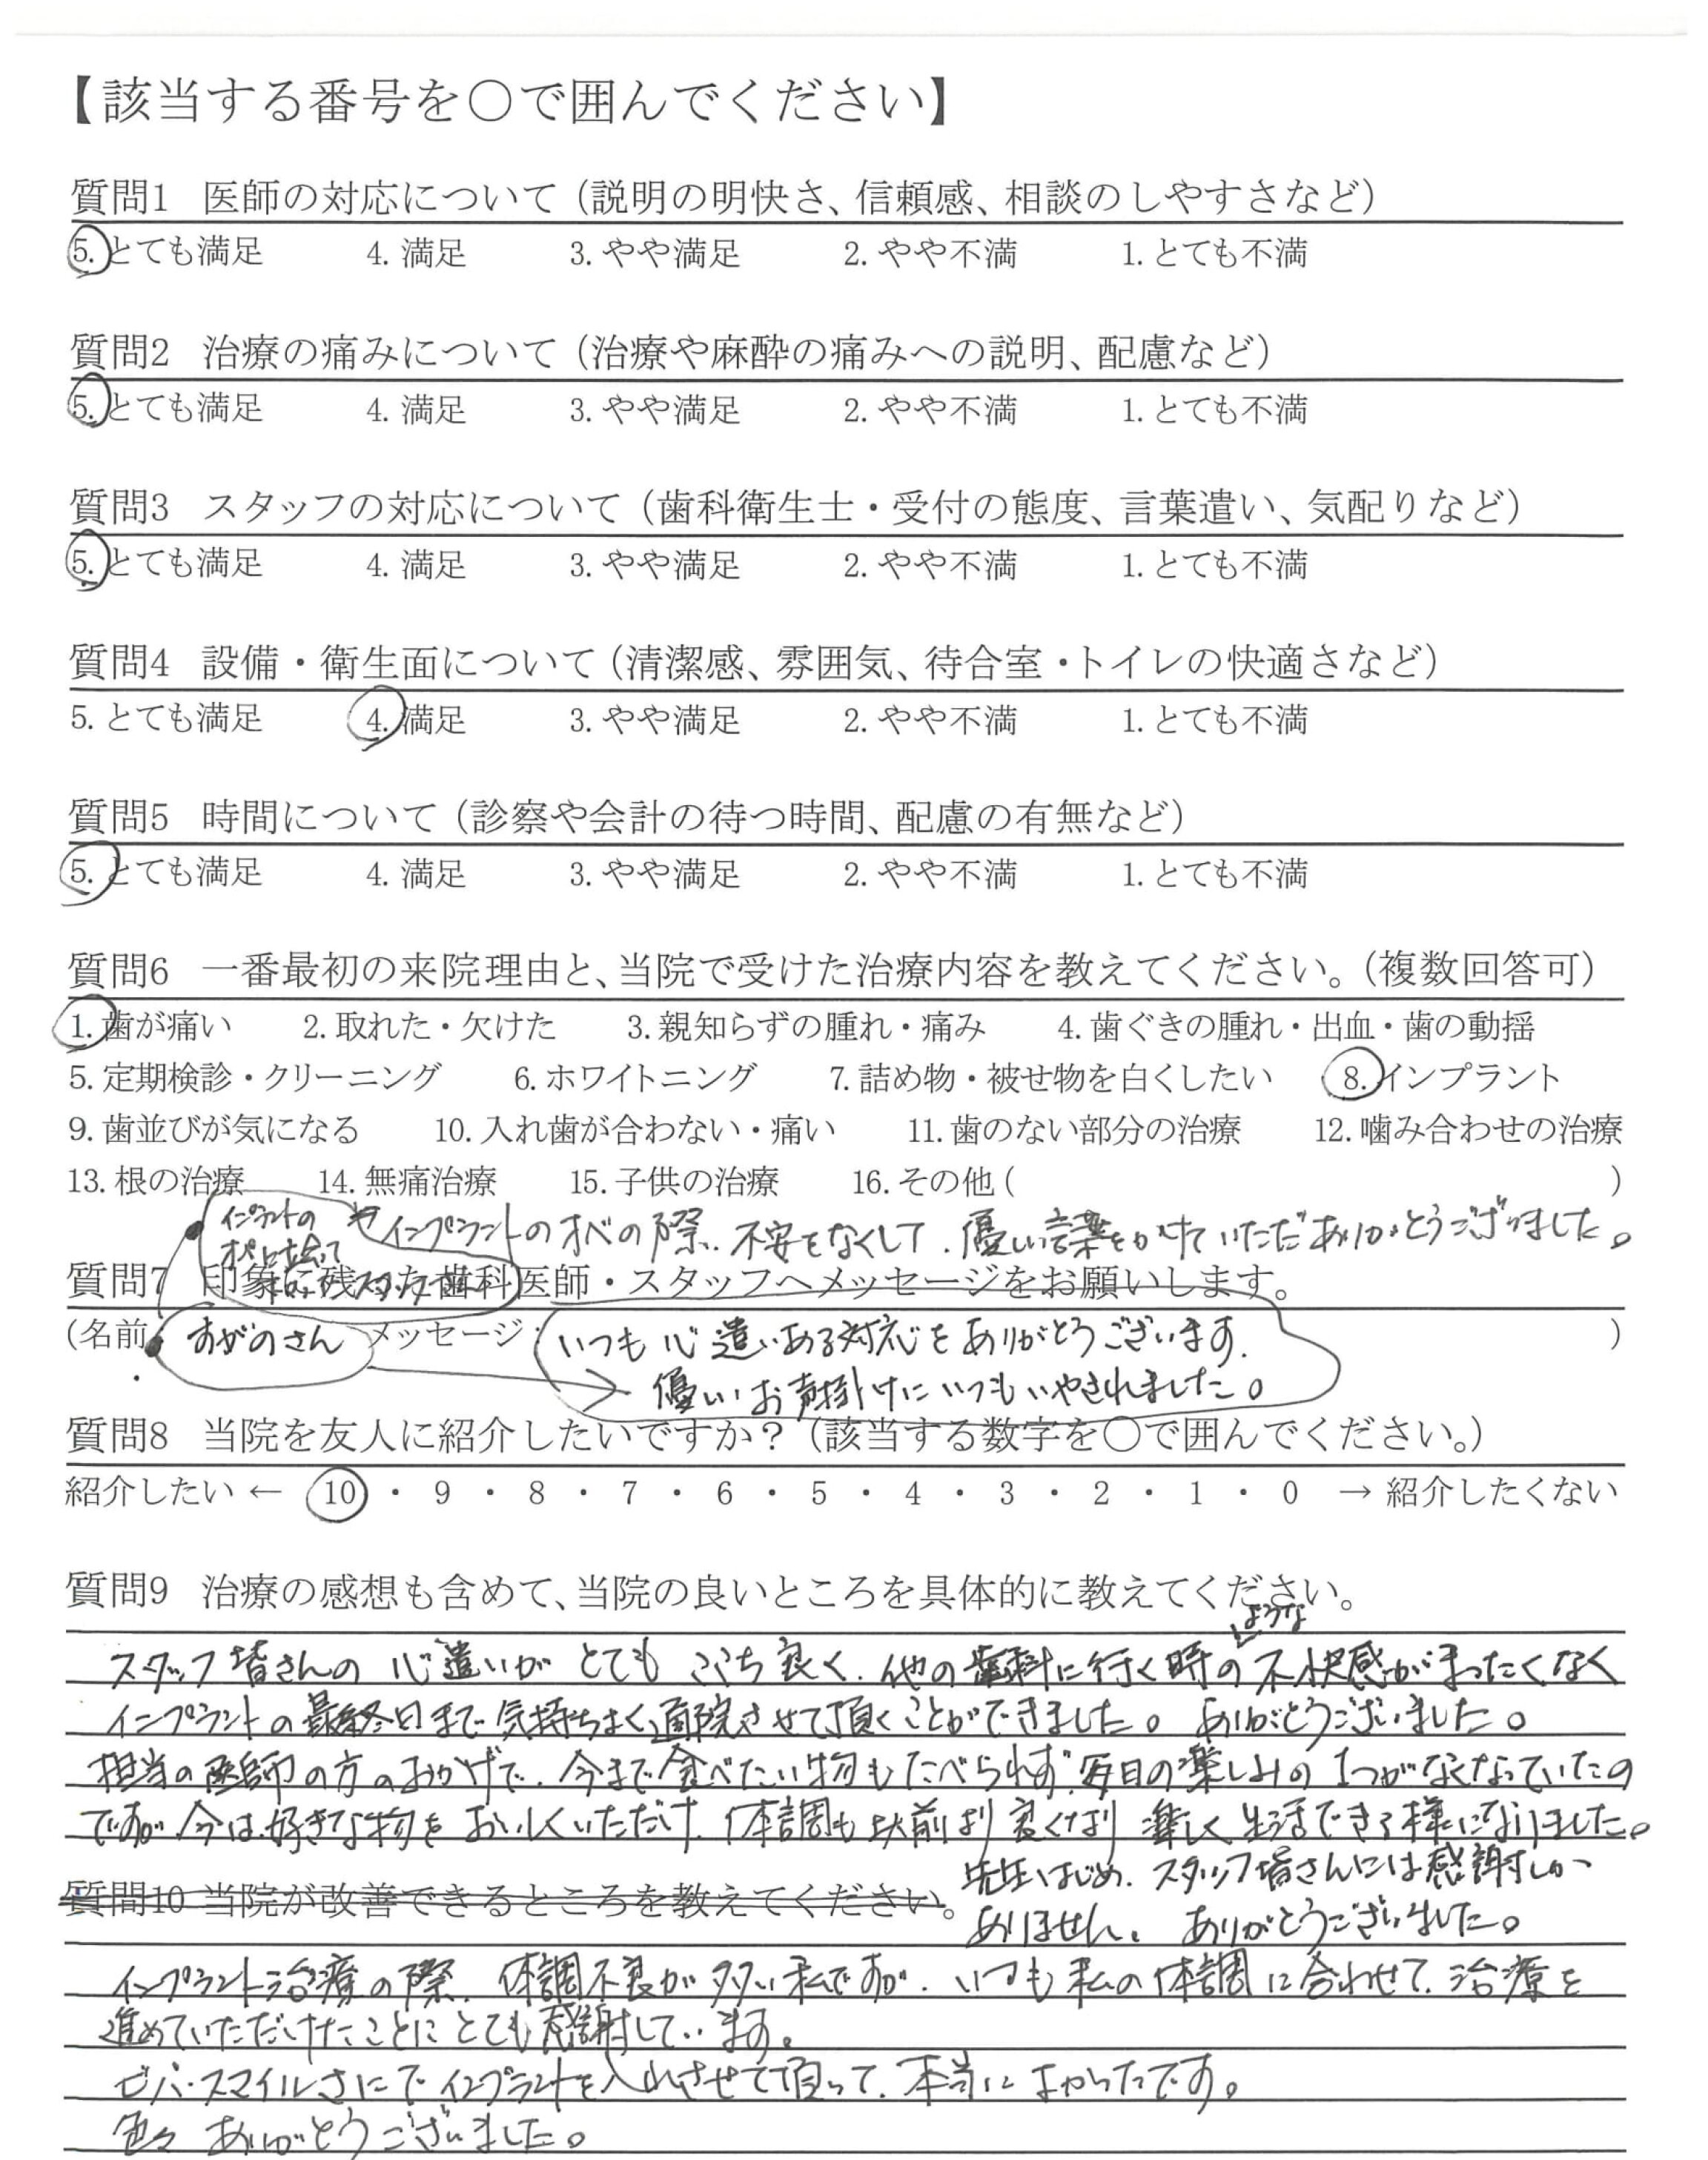 【該当する番号を〇で囲んでください】
質問1 医師の対応について（説明の明快さ、信頼感、相談のしやすさなど）
5. とても満足 4. 満足 3. やや満足 2. やや不満 1. とても不満
質問2 治療の痛みについて（治療や麻酔の痛みへの説明、配慮など）
5. とても満足 4. 満足 3. やや満足 2. やや不満 1. とても不満
質問3 スタッフの対応について（歯科衛生士・受付の態度、言葉遣い、気配りなど）
5. とても満足 4. 満足 3. やや満足 2. やや不満 1. とても不満
質問4 設備・衛生面について（清潔感、雰囲気、待合室・トイレの快適さなど）
5. とても満足 4. 満足 3. やや満足 2. やや不満 1. とても不満
質問5 時間について（診察や会計の待つ時間、配慮の有無など）
5. とても満足 4. 満足 3. やや満足 2. やや不満 1. とても不満
質問6 一番最初の来院理由と、当院で受けた治療内容を教えてください。（複数回答可）
1. 歯が痛い 2. 取れた・欠けた 3. 親知らずの腫れ・痛み 4. 歯ぐきの腫れ・出血・歯の動揺
5. 定期検診・クリーニング 6. ホワイトニング 7. 詰め物・被せ物を白くしたい 8. インプラント
9. 歯並びが気になる 10. 入れ歯が合わない・痛い 11. 歯のない部分の治療 12. 噛み合わせの治療
13. 根の治療 14. 無痛治療 15. 子供の治療 16. その他 ( )
インプラントの
インプラントのオペの際、不安をなくして、優しい言葉をかけていただきありがとうございました。
質問7 印象に残った歯科医師・スタッフへメッセージをお願いします。
(名前 すがのさん メッセージ: いつも心遣いある対応をありがとうございます。 )
優しいお声掛けにいつもいやされました。
質問8 当院を友人に紹介したいですか？（該当する数字を〇で囲んでください。）
紹介したい ← 10 ・ 9 ・ 8 ・ 7 ・ 6 ・ 5 ・ 4 ・ 3 ・ 2 ・ 1 ・ 0 → 紹介したくない
質問9 治療の感想も含めて、当院の良いところを具体的に教えてください。
スタッフ皆さんの心遣いがとてもここち良く、他の歯科に行く時のような不快感がまったくなく
インプラントの最終日まで気持ちよく通院させて頂くことができました。ありがとうございました。
担当の医師の方のおかげで、今まで食べたい物もたべられず、毎日の楽しみの1つがなくなっていたの
ですが今は、好きな物をおいしくいただけ、体調も以前より良くなり 楽しく生活できる様になりました。
先生はじめ、スタッフ皆さんには感謝しか
ありません。ありがとうございました。
質問10 当院が改善できるところを教えてください。
インプラント治療の際、体調不良が多い私ですが、いつも私の体調に合わせて、治療を
進めていただけたことにとても感謝しています。
ビバ・スマイルさんでインプラントを入れさせて頂って、本当によかったです。
色々ありがとうございました。